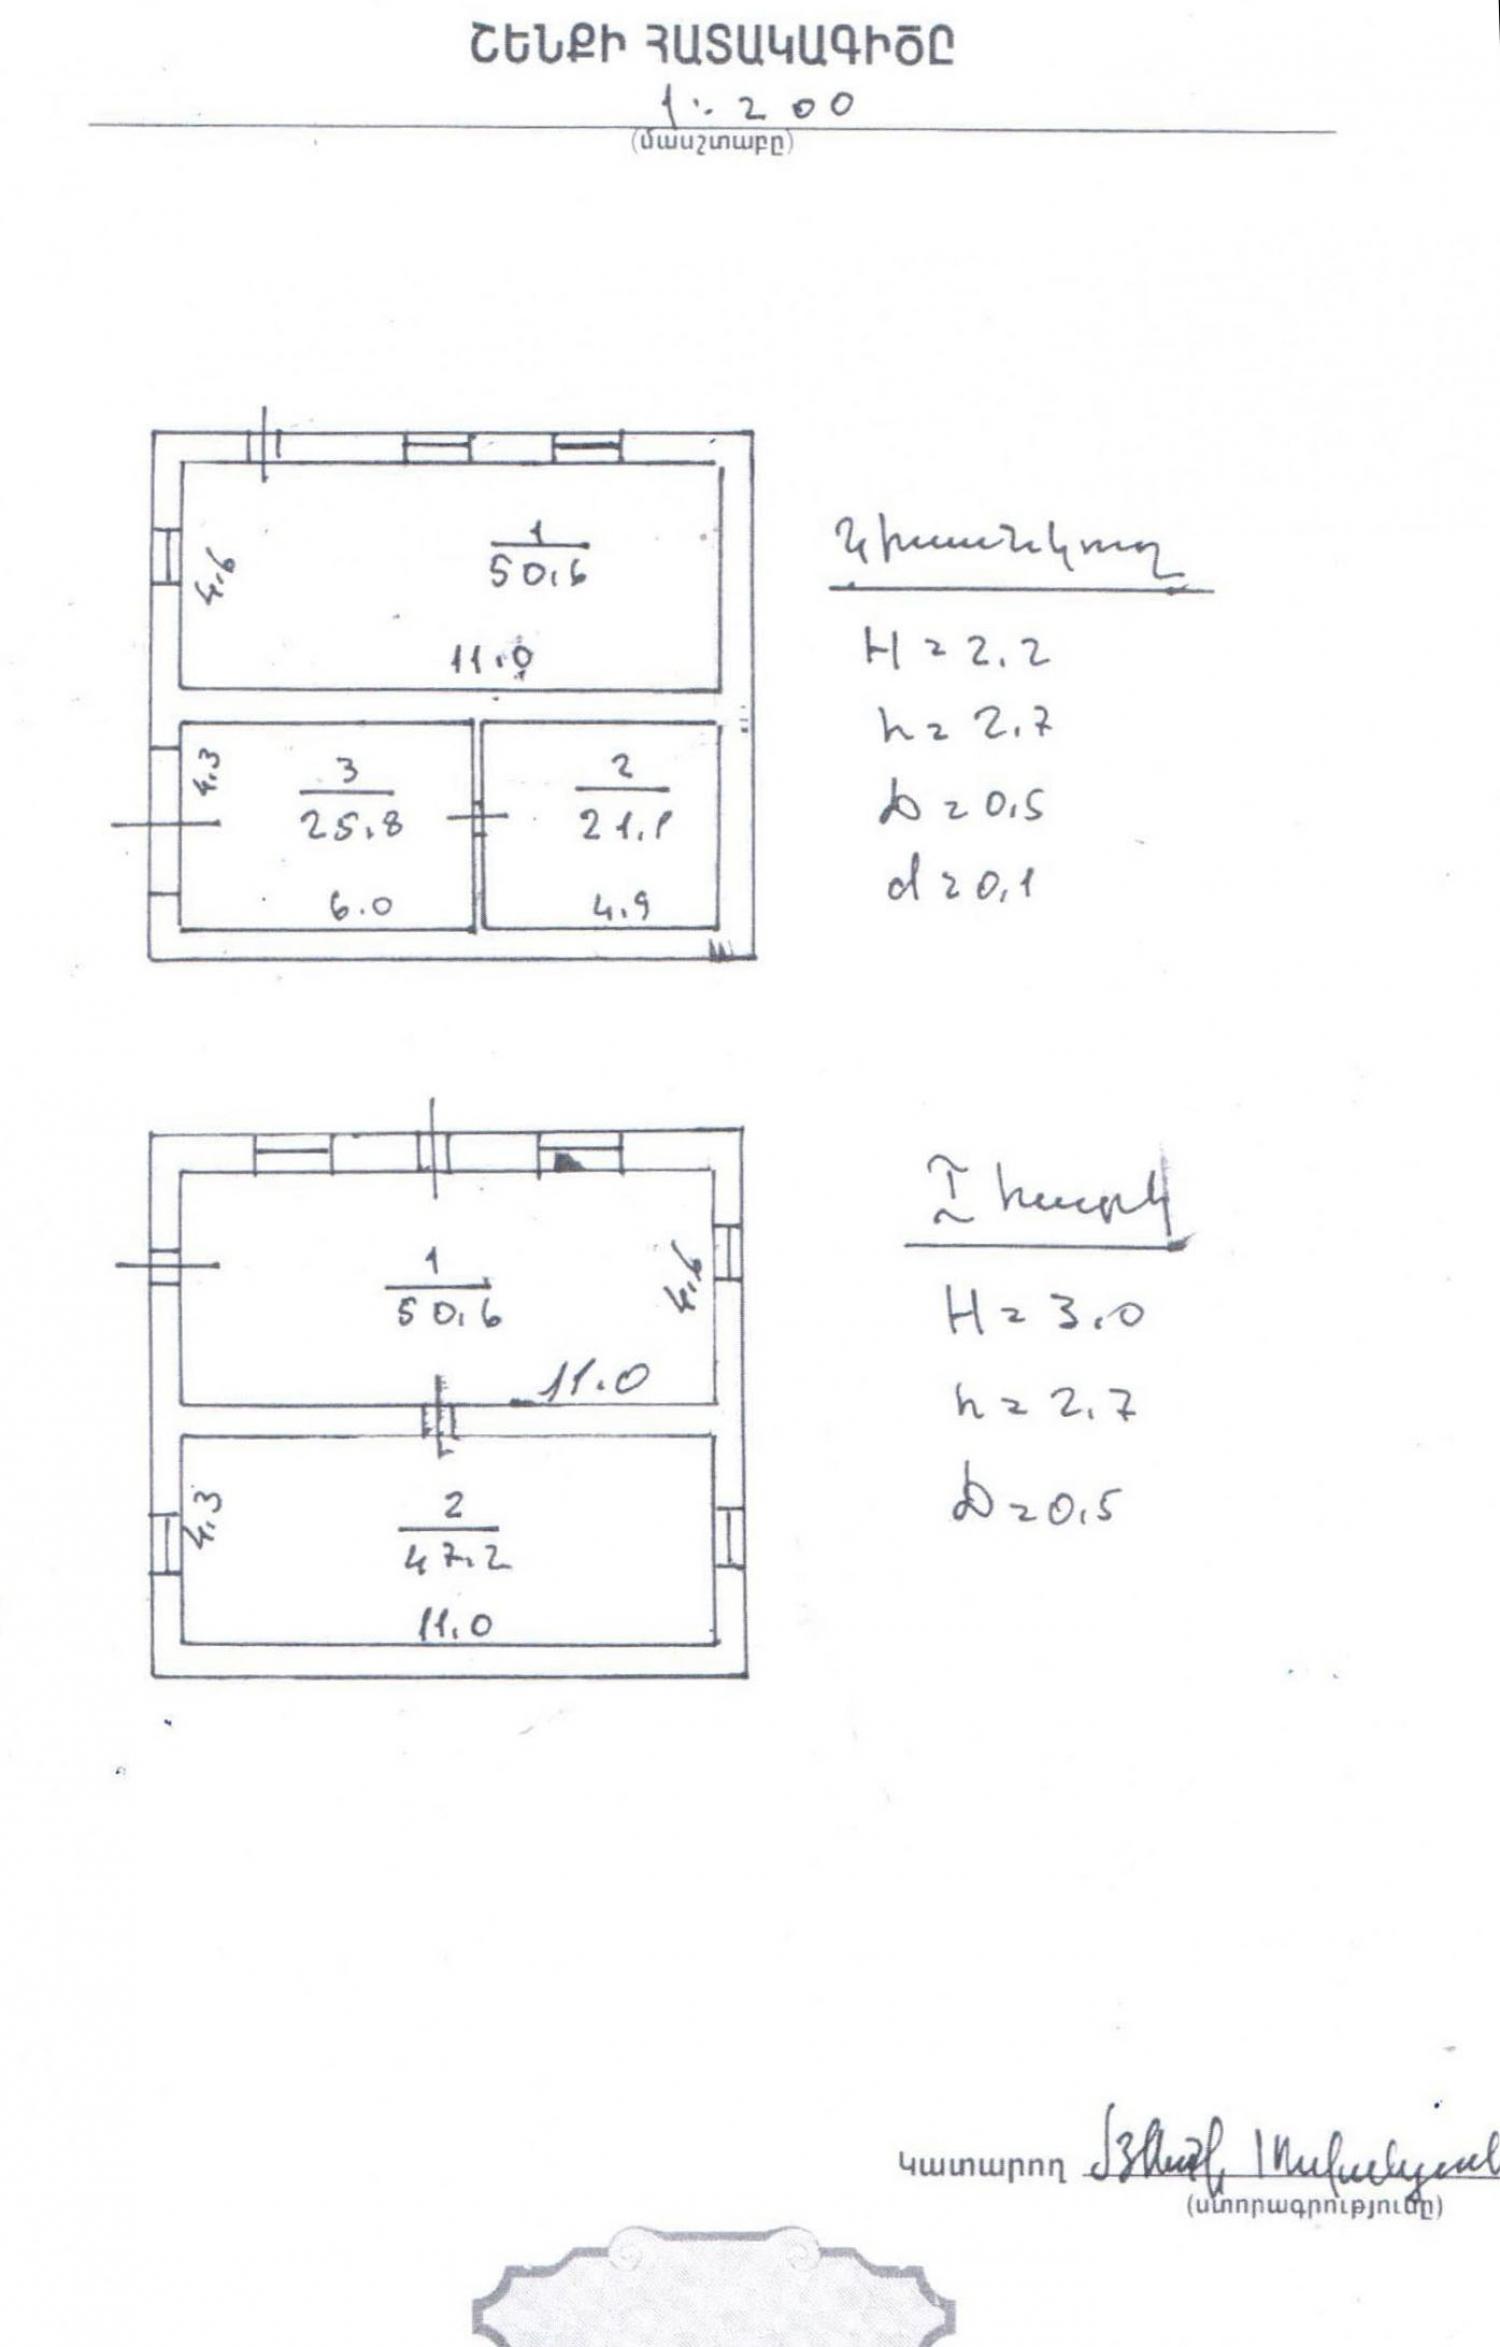 ՇԵՆՔԻ ՀԱՏԱԿԱԳԻԾԸ
1:200
(մասշտաբը)
1
50.6
4.6
11.0
3
25.8
4.3
6.0
2
21.1
4.9
Նկուղ
H = 2.2
h = 2.7
D = 0.5
d = 0.1
1
50.6
4.6
11.0
2
47.2
4.3
11.0
I հարկ
H = 3.0
h = 2.7
D = 0.5
Կատարող
(ստորագրությունը)